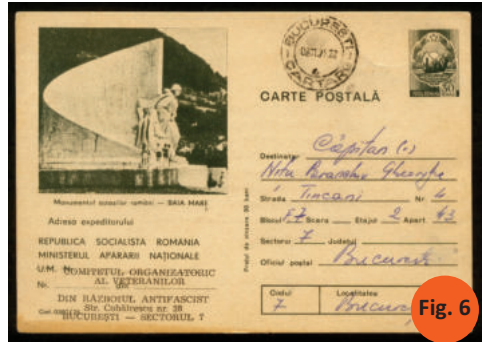 BUCUREȘTI
CARTARE
50
CARTE POȘTALĂ
Monumentul ostașilor români — BAIA MARE
Adresa expeditorului
REPUBLICA SOCIALISTĂ ROMÂNIA
MINISTERUL APĂRĂRII NAȚIONALE
U.M. Nr.
COMITETUL ORGANIZATORIC
Nr.
AL VETERANILOR
DIN RĂZBOIUL ANTIFASCIST
Str. Cobălcescu nr. 28
BUCUREȘTI — SECTORUL 7
Cod
Prețul de vînzare 30 bani
Destinatar Căpitan (r)
Gheorghe
Strada Tincani Nr. 4
Blocul F7 Scara Etajul 2 Apart. 43
Sectorul 7 Județul
Oficiul poștal București
Codul Localitatea
7 București
Fig. 6